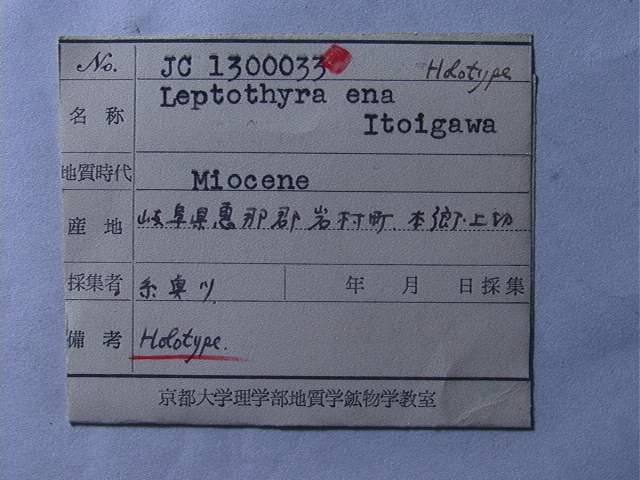 No. JC 1300033 Holotype
名称 Leptothyra ena
Itoigawa
地質時代 Miocene
産地 岐阜県恵那郡岩村町本郷上切
採集者 糸魚川 年 月 日採集
備考 Holotype.
京都大学理学部地質学鉱物学教室